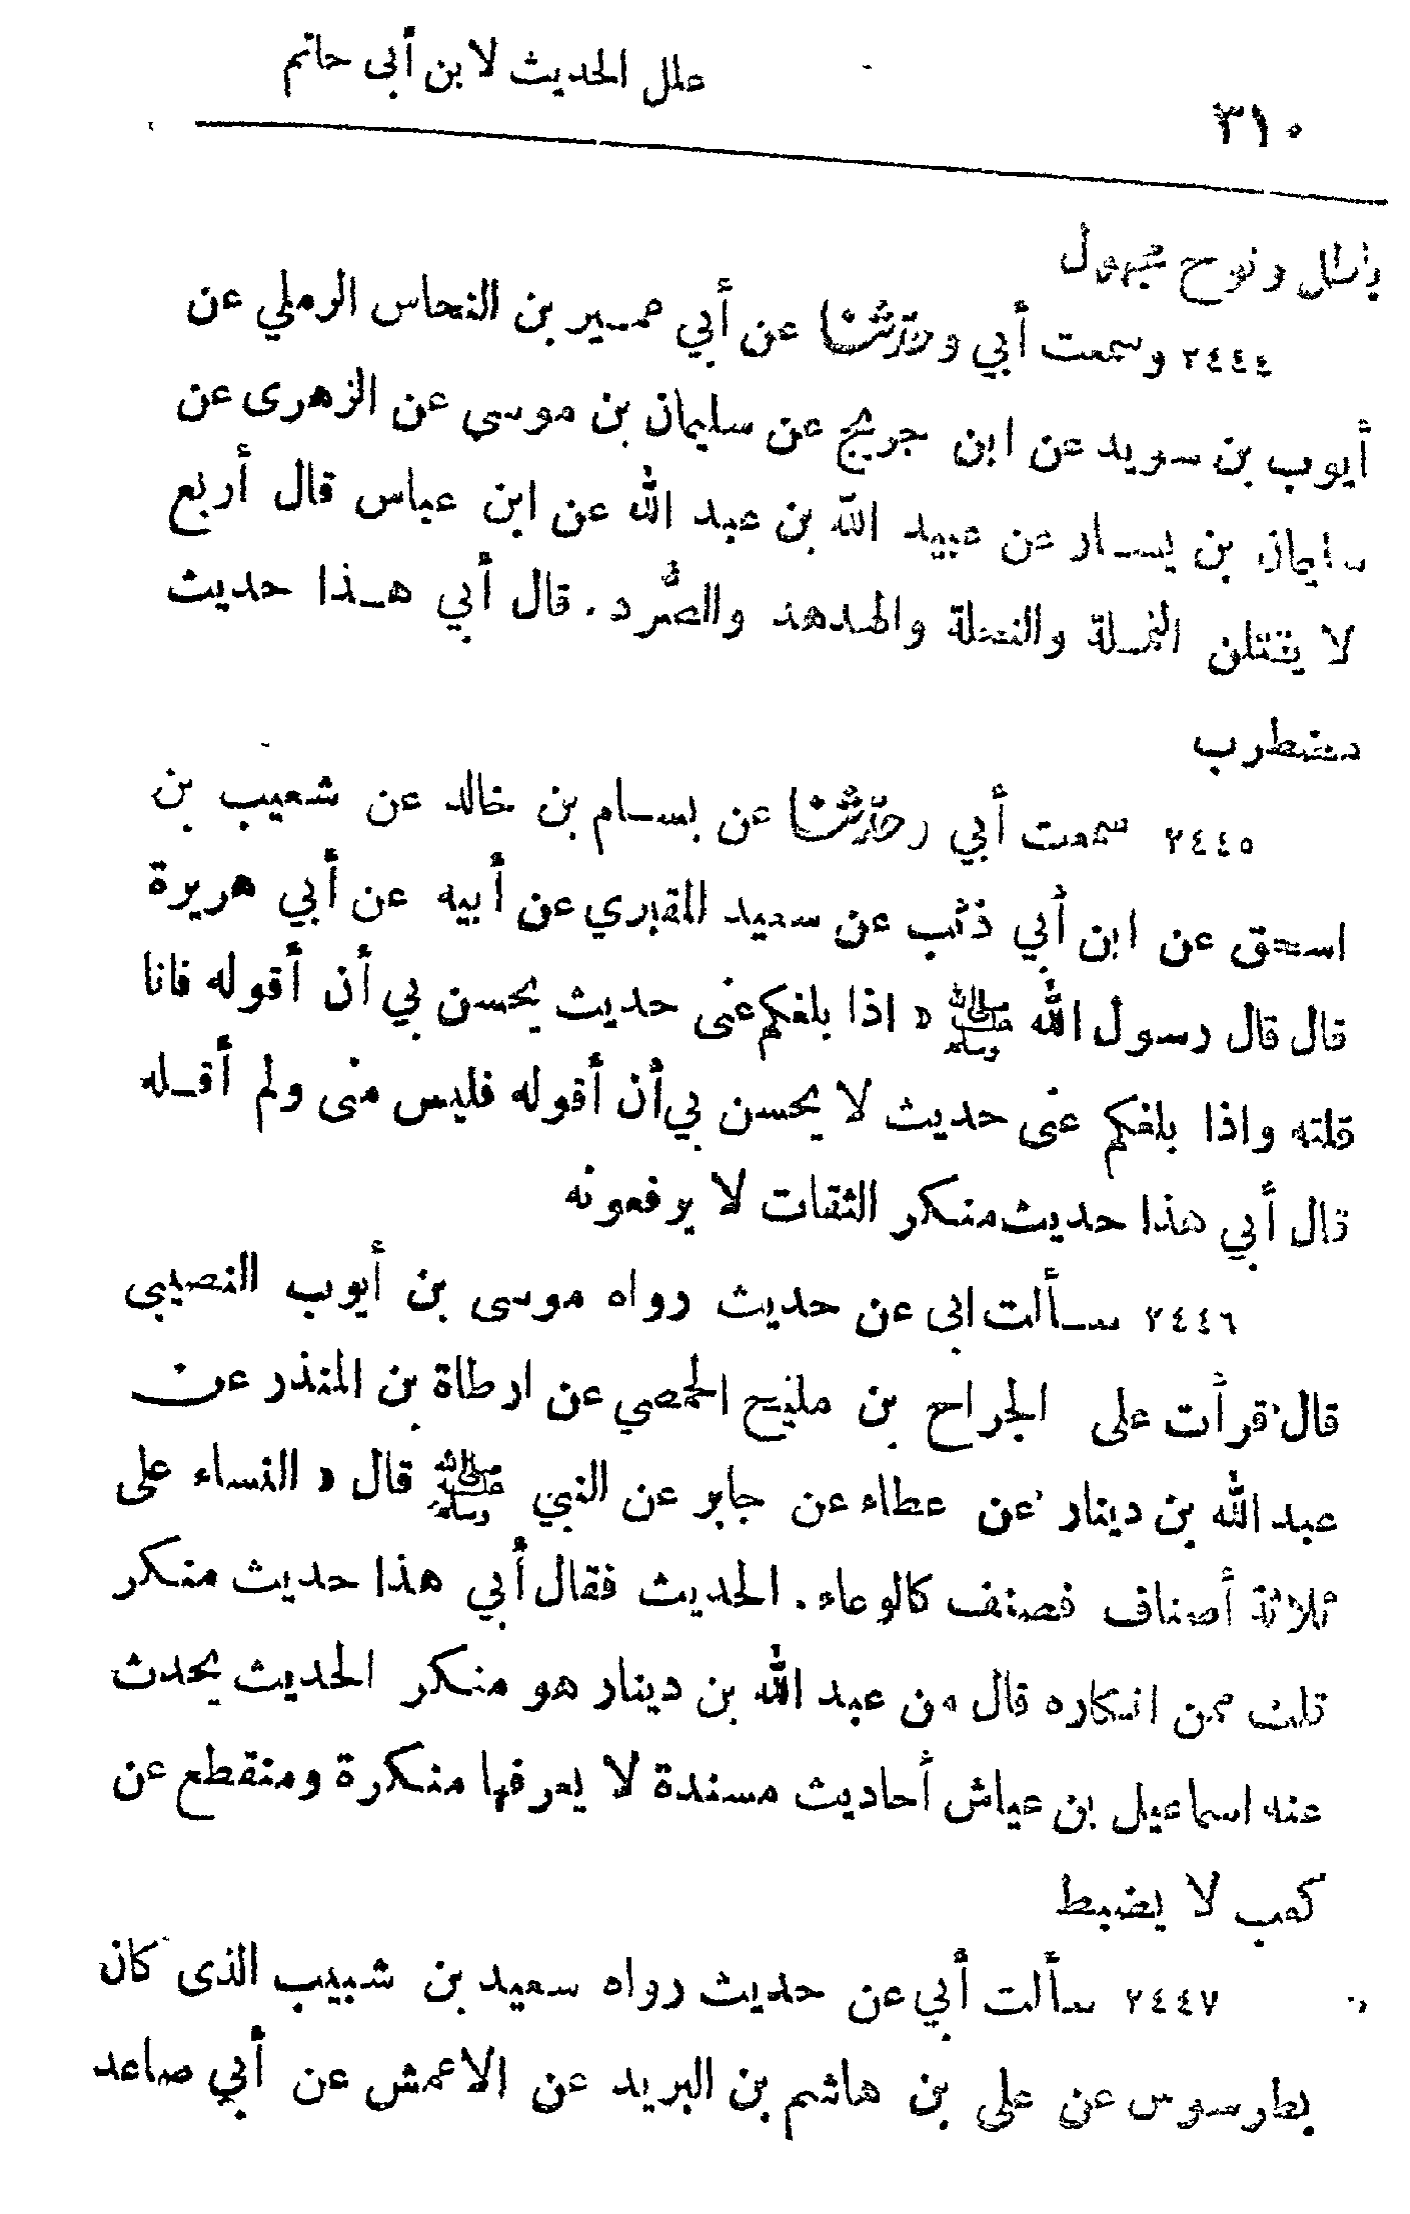 علل الحديث لابن أبى حاتم
٣١٠
باطل ونوح مجهول
٢٤٤٤ وسمعت أبي وحدثنا عن أبي عمير بن النحاس الرملي عن
أيوب بن سويد عن ابن جريج عن سليمان بن موسى عن الزهرى عن
سليمان بن يسار عن عبيد الله بن عبد الله عن ابن عباس قال أربع
لا يقتلن النملة والنحلة والهدهد والصُّرد . قال أبي هذا حديث
مضطرب
٢٤٤٥ سمعت أبي وحدثنا عن بسام بن خالد عن شعيب بن
اسحق عن ابن أبي ذئب عن سعيد المقبري عن أبيه عن أبي هريرة
قال قال رسول الله ﷺ « اذا بلغكم عنى حديث يحسن بي أن أقوله فانا
قلته واذا بلغكم عنى حديث لا يحسن بي أن أقوله فليس منى ولم أقله
قال أبي هذا حديث منكر الثقات لا يرفعونه
٢٤٤٦ سألت ابى عن حديث رواه موسى بن أيوب النصيبى
قال قرأت على الجراح بن مليح الحمصي عن ارطاة بن المنذر عن
عبد الله بن دينار عن عطاء عن جابر عن النبي ﷺ قال « النساء على
ثلاثة أصناف فصنف كالوعاء . الحديث فقال أبي هذا حديث منكر
قلت ممن انكاره قال من عبد الله بن دينار هو منكر الحديث يحدث
عنه اسماعيل بن عياش أحاديث مسندة لا يعرفها منكرة ومنقطع عن
كعب لا يضبط
٢٤٤٧ سألت أبي عن حديث رواه سعيد بن شبيب الذى كان
بطرسوس عن على بن هاشم بن البريد عن الاعمش عن أبي صاعد